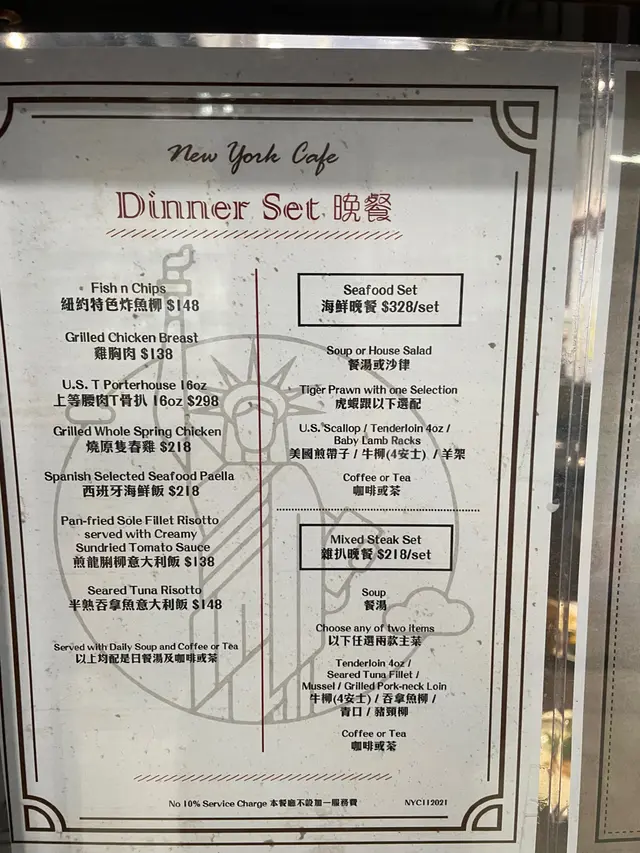 New York Cafe
Dinner Set 晚餐
Fish n Chips
紐約特色炸魚柳 $148
Grilled Chicken Breast
雞胸肉 $138
U.S. T Porterhouse 16oz
上等腰肉T骨扒 16oz $298
Grilled Whole Spring Chicken
燒原隻春雞 $218
Spanish Selected Seafood Paella
西班牙海鮮飯 $218
Pan-fried Sole Fillet Risotto
served with Creamy
Sundried Tomato Sauce
煎龍脷柳意大利飯 $138
Seared Tuna Risotto
半熟吞拿魚意大利飯 $148
Served with Daily Soup and Coffee or Tea
以上均配是日餐湯及咖啡或茶
Seafood Set
海鮮晚餐 $328/set
Soup or House Salad
餐湯或沙律
Tiger Prawn with one Selection
虎蝦跟以下選配
U.S. Scallop / Tenderloin 4oz /
Baby Lamb Racks
美國煎帶子 / 牛柳(4安士) / 羊架
Coffee or Tea
咖啡或茶
Mixed Steak Set
雜扒晚餐 $218/set
Soup
餐湯
Choose any of two items
以下任選兩款主菜
Tenderloin 4oz /
Seared Tuna Fillet /
Mussel / Grilled Pork-neck Loin
牛柳(4安士) / 吞拿魚柳 /
青口 / 豬頸柳
Coffee or Tea
咖啡或茶
No 10% Service Charge 本餐廳不設加一服務費
NYC112021